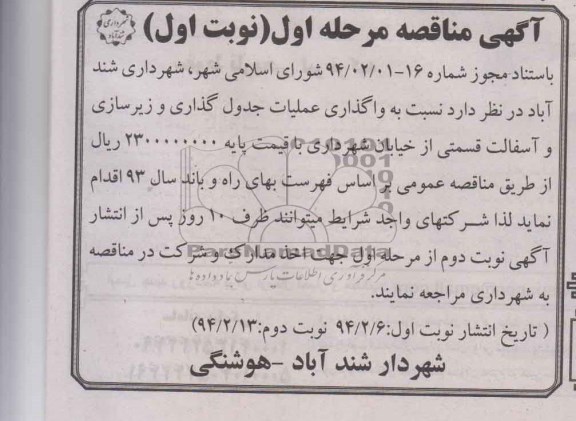 آگهی مناقصه مرحله اول(نوبت اول)
شهرداری
شندآباد
باستناد مجوز شماره ۱۶-۹۴/۰۲/۰۱ شورای اسلامی شهر، شهرداری شند
آباد در نظر دارد نسبت به واگذاری عملیات جدول گذاری و زیرسازی
و آسفالت قسمتی از خیابان شهرداری با قیمت پایه ۲۳۰۰۰۰۰۰۰۰ ریال
از طریق مناقصه عمومی بر اساس فهرست بهای راه و باند سال ۹۳ اقدام
نماید لذا شرکتهای واجد شرایط میتوانند ظرف ۱۰ روز پس از انتشار
آگهی نوبت دوم از مرحله اول جهت اخذ مدارک و شرکت در مناقصه
ParsNamadData
مرکز فرآوری اطلاعات پارس نماد داده ها
به شهرداری مراجعه نمایند.
( تاریخ انتشار نوبت اول:۹۴/۲/۶ نوبت دوم:۹۴/۲/۱۳)
شهردار شند آباد -هوشنگی